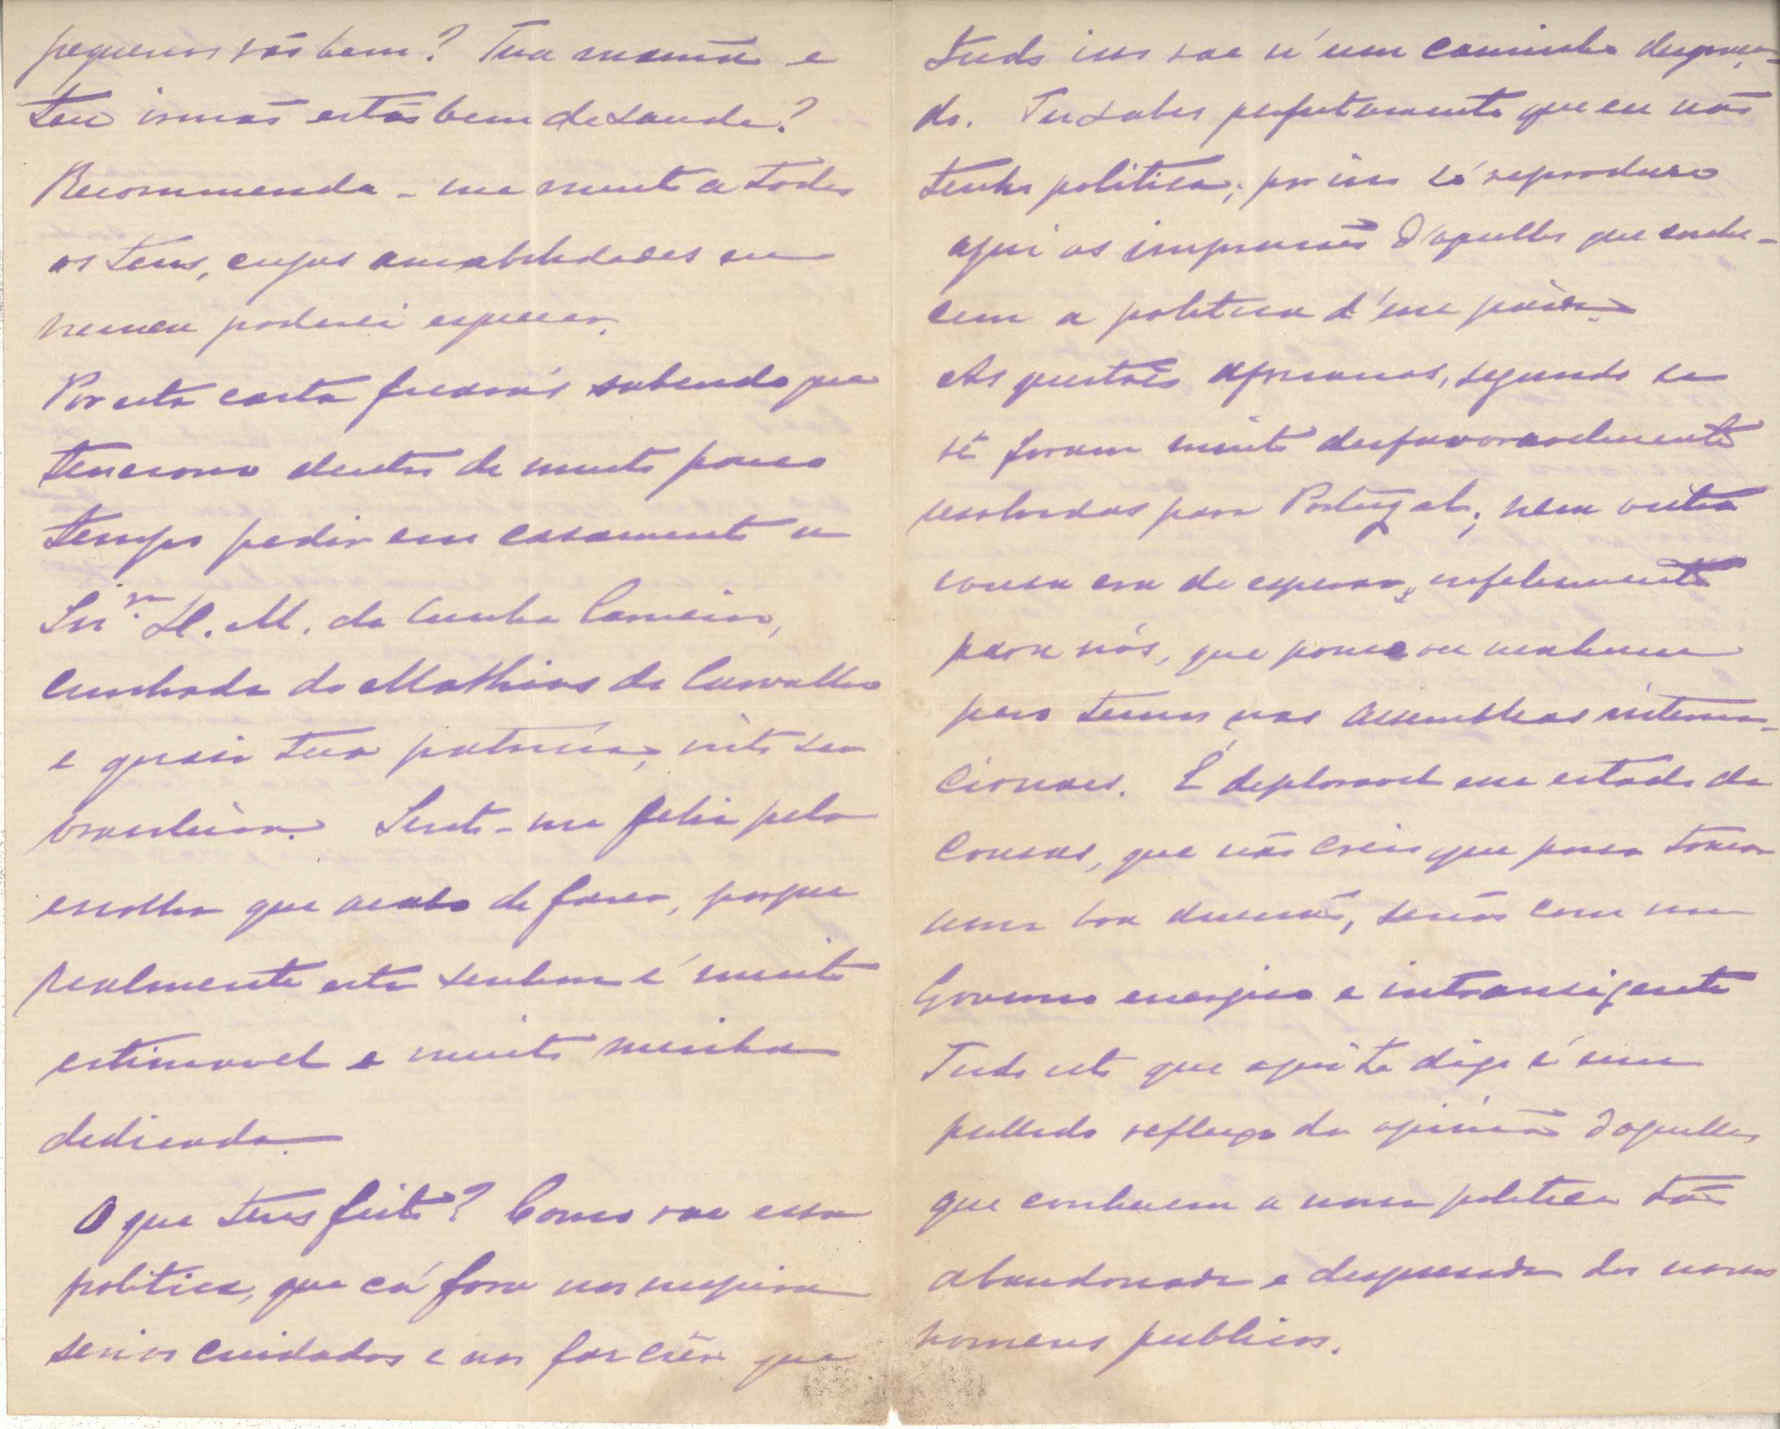 pequenos vão bem? Tua mamã e
teu irmão estão bem de saude?
Recommenda-me muito a todos
os teus, cujas amabilidades eu
nunca poderei esquecer.
Por esta carta ficarás sabendo que
tenciono dentro de muito pouco
tempo pedir em casamento a
Snrª H. M. da Cunha Carneiro,
cunhada do Mathias de Carvalho
e quasi tua patricia, isto é
brasileira. Sinto-me feliz pela
escolha que acabo de fazer, porque
realmente esta senhora é muito
estimavel e muito minha
dedicada.
O que tens feito? Como vae essa
politica, que cá fora nos inspira
serios cuidados e nos faz crêr que
tudo isso vae n'um caminho desgraça-
do. Tu sabes perfeitamente que eu não
tenho politica, por isso só reproduzo
aqui as impressões d'aquelles que conhe-
cem a politica d'esse paiz.
As questões africanas, segundo se
vê foram muito desfavoravelmente
resolvidas para Portugal; nem outra
cousa era de esperar, infelizmente
para nós, que pouco ou nenhum
peso temos nas assembleas interna-
cionaes. É deploravel esse estado de
cousas, que não creio que possa tomar
uma boa direcção, senão com um
Governo energico e intransigente
Tudo isto que aqui te digo é um
pallido reflexo da opinião d'aquelles
que conhecem a nossa politica tão
abandonada e desprezada dos nossos
homens publicos.